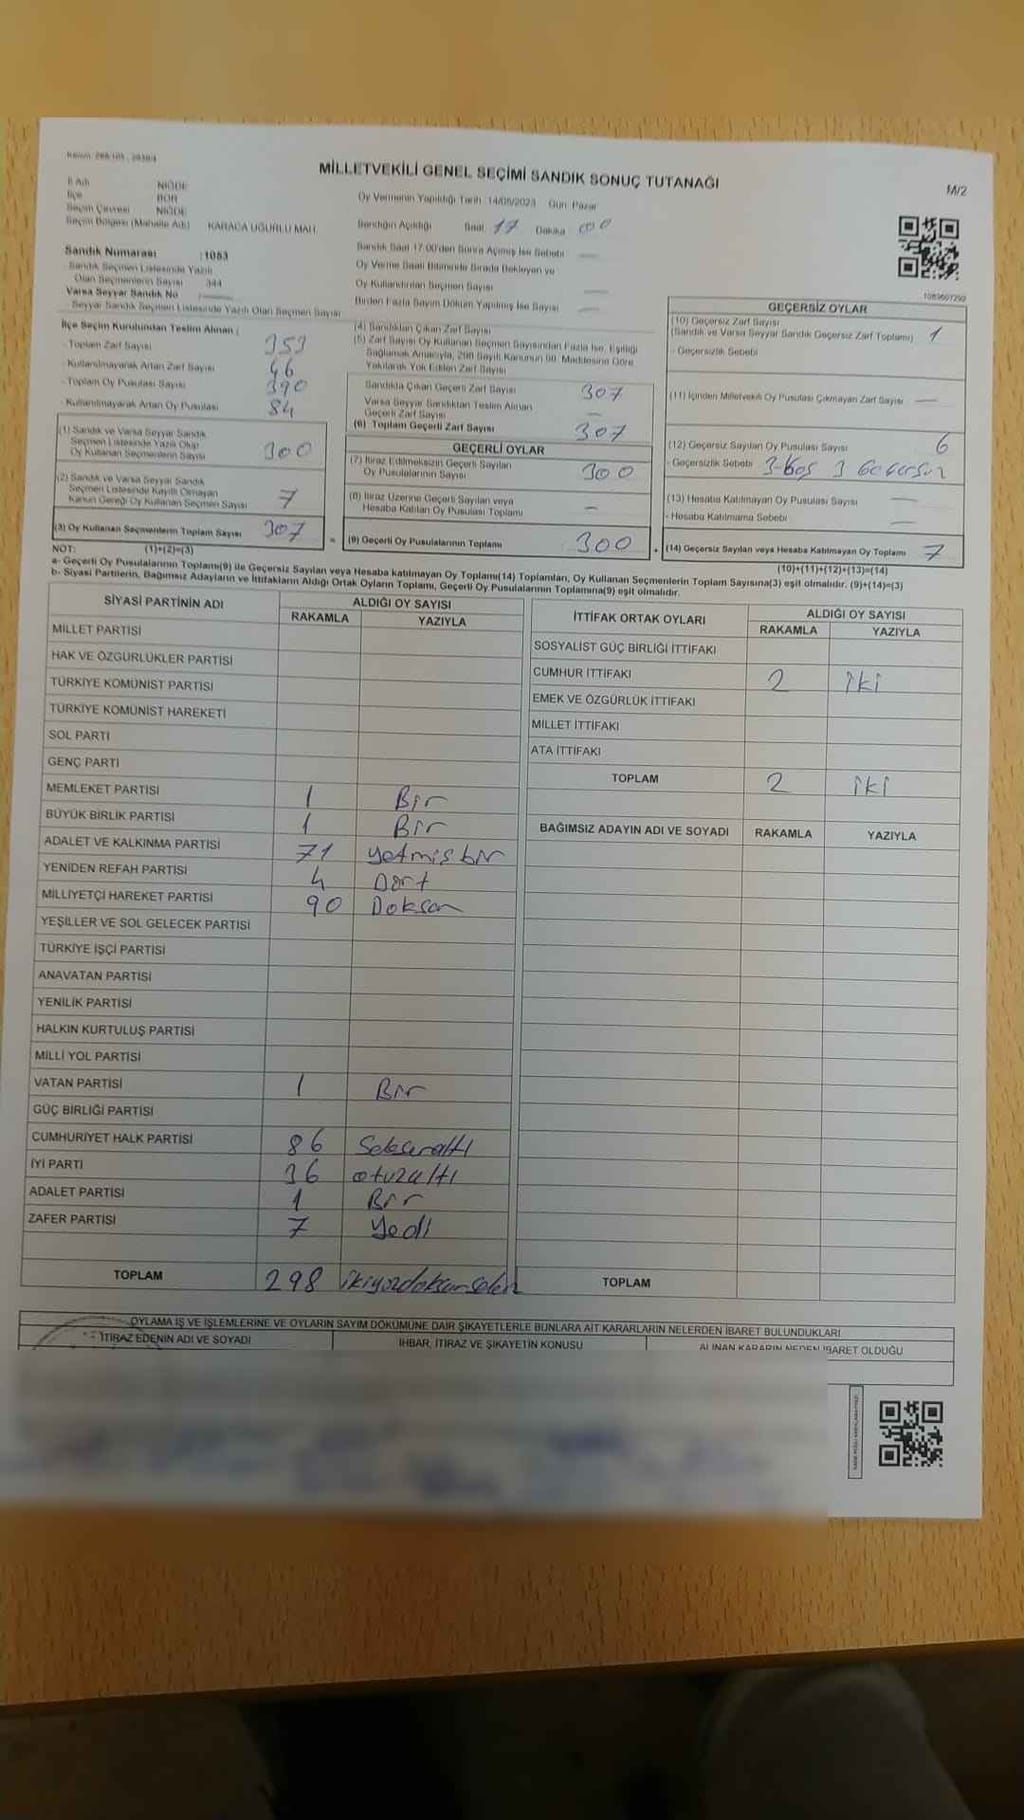 MİLLETVEKİLİ GENEL SEÇİMİ SANDIK SONUÇ TUTANAĞI
M/2
İl Adı NİĞDE
İlçe BOR
Seçim Çevresi NİĞDE
Seçim Bölgesi (Mahalle Adı) KARACA UĞURLU MAH.
Oy Vermenin Yapıldığı Tarih 14/05/2023 Gün Pazar
Sandığın Açıldığı Saat 17 Dakika 00
Sandık Saat 17.00'den Sonra Açılmış İse Sebebi
Oy Verme Saati Bitiminde Sırada Bekleyen ve
Oy Kullandırılan Seçmen Sayısı
Birden Fazla Sayım Döküm Yapılmış İse Sayısı
Sandık Numarası :1053
Sandık Seçmen Listesinde Yazılı
Olan Seçmenlerin Sayısı 344
Varsa Seyyar Sandık No
Seyyar Sandık Seçmen Listesinde Yazılı Olan Seçmen Sayısı
İlçe Seçim Kurulundan Teslim Alınan :
- Toplam Zarf Sayısı 353
- Kullanılmayarak Artan Zarf Sayısı 46
- Toplam Oy Pusulası Sayısı 390
- Kullanılmayarak Artan Oy Pusulası 84
(1) Sandık ve Varsa Seyyar Sandık
Seçmen Listesinde Yazılı Olup
Oy Kullanan Seçmenlerin Sayısı 300
(2) Sandık ve Varsa Seyyar Sandık
Seçmen Listesinde Kayıtlı Olmayan
Kanun Gereği Oy Kullanan Seçmen Sayısı 7
(3) Oy Kullanan Seçmenlerin Toplam Sayısı 307
(1)+(2)=(3)
(4) Sandıktan Çıkan Zarf Sayısı
(5) Zarf Sayısı Oy Kullanan Seçmen Sayısından Fazla İse, Eşitliği
Sağlamak Amacıyla, 298 Sayılı Kanunun 98. Maddesine Göre
Yakılarak Yok Edilen Zarf Sayısı
Sandıkta Çıkan Geçerli Zarf Sayısı 307
Varsa Seyyar Sandıktan Teslim Alınan
Geçerli Zarf Sayısı
(6) Toplam Geçerli Zarf Sayısı 307
GEÇERLİ OYLAR
(7) İtiraz Edilmeksizin Geçerli Sayılan
Oy Pusulalarının Sayısı 300
(8) İtiraz Üzerine Geçerli Sayılan veya
Hesaba Katılan Oy Pusulası Toplamı –
(9) Geçerli Oy Pusulalarının Toplamı 300
GEÇERSİZ OYLAR
(10) Geçersiz Zarf Sayısı
(Sandık ve Varsa Seyyar Sandık Geçersiz Zarf Toplamı) 1
- Geçersizlik Sebebi
(11) İçinden Milletvekili Oy Pusulası Çıkmayan Zarf Sayısı
(12) Geçersiz Sayılan Oy Pusulası Sayısı 6
- Geçersizlik Sebebi 3-Boş 3
(13) Hesaba Katılmayan Oy Pusulası Sayısı
- Hesaba Katılmama Sebebi
(14) Geçersiz Sayılan veya Hesaba Katılmayan Oy Toplamı 7
(10)+(11)+(12)+(13)=(14)
NOT:
a- Geçerli Oy Pusulalarının Toplamı(9) ile Geçersiz Sayılan veya Hesaba katılmayan Oy Toplamı(14) Toplamları, Oy Kullanan Seçmenlerin Toplam Sayısına(3) eşit olmalıdır. (9)+(14)=(3)
b- Siyasi Partilerin, Bağımsız Adayların ve İttifakların Aldığı Ortak Oyların Toplamı, Geçerli Oy Pusulalarının Toplamına(9) eşit olmalıdır.
SİYASİ PARTİNİN ADI ALDIĞI OY SAYISI
RAKAMLA YAZIYLA
MİLLET PARTİSİ
HAK VE ÖZGÜRLÜKLER PARTİSİ
TÜRKİYE KOMÜNİST PARTİSİ
TÜRKİYE KOMÜNİST HAREKETİ
SOL PARTİ
GENÇ PARTİ
MEMLEKET PARTİSİ 1 Bir
BÜYÜK BİRLİK PARTİSİ 1 Bir
ADALET VE KALKINMA PARTİSİ 71 yetmiş bir
YENİDEN REFAH PARTİSİ 4 Dört
MİLLİYETÇİ HAREKET PARTİSİ 90 Doksan
YEŞİLLER VE SOL GELECEK PARTİSİ
TÜRKİYE İŞÇİ PARTİSİ
ANAVATAN PARTİSİ
YENİLİK PARTİSİ
HALKIN KURTULUŞ PARTİSİ
MİLLİ YOL PARTİSİ
VATAN PARTİSİ 1 Bir
GÜÇ BİRLİĞİ PARTİSİ
CUMHURİYET HALK PARTİSİ 86 Seksenaltı
İYİ PARTİ 36 otuzaltı
ADALET PARTİSİ 1 Bir
ZAFER PARTİSİ 7 Yedi
TOPLAM 298 ikiyüzdoksansekiz
İTTİFAK ORTAK OYLARI ALDIĞI OY SAYISI
RAKAMLA YAZIYLA
SOSYALİST GÜÇ BİRLİĞİ İTTİFAKI
CUMHUR İTTİFAKI 2 iki
EMEK VE ÖZGÜRLÜK İTTİFAKI
MİLLET İTTİFAKI
ATA İTTİFAKI
TOPLAM 2 iki
BAĞIMSIZ ADAYIN ADI VE SOYADI RAKAMLA YAZIYLA
TOPLAM
OYLAMA İŞ VE İŞLEMLERİNE VE OYLARIN SAYIM DÖKÜMÜNE DAİR ŞİKAYETLERLE BUNLARA AİT KARARLARIN NELERDEN İBARET BULUNDUKLARI
İTİRAZ EDENİN ADI VE SOYADI İHBAR, İTİRAZ VE ŞİKAYETİN KONUSU ALINAN KARARIN NEDEN İBARET OLDUĞU